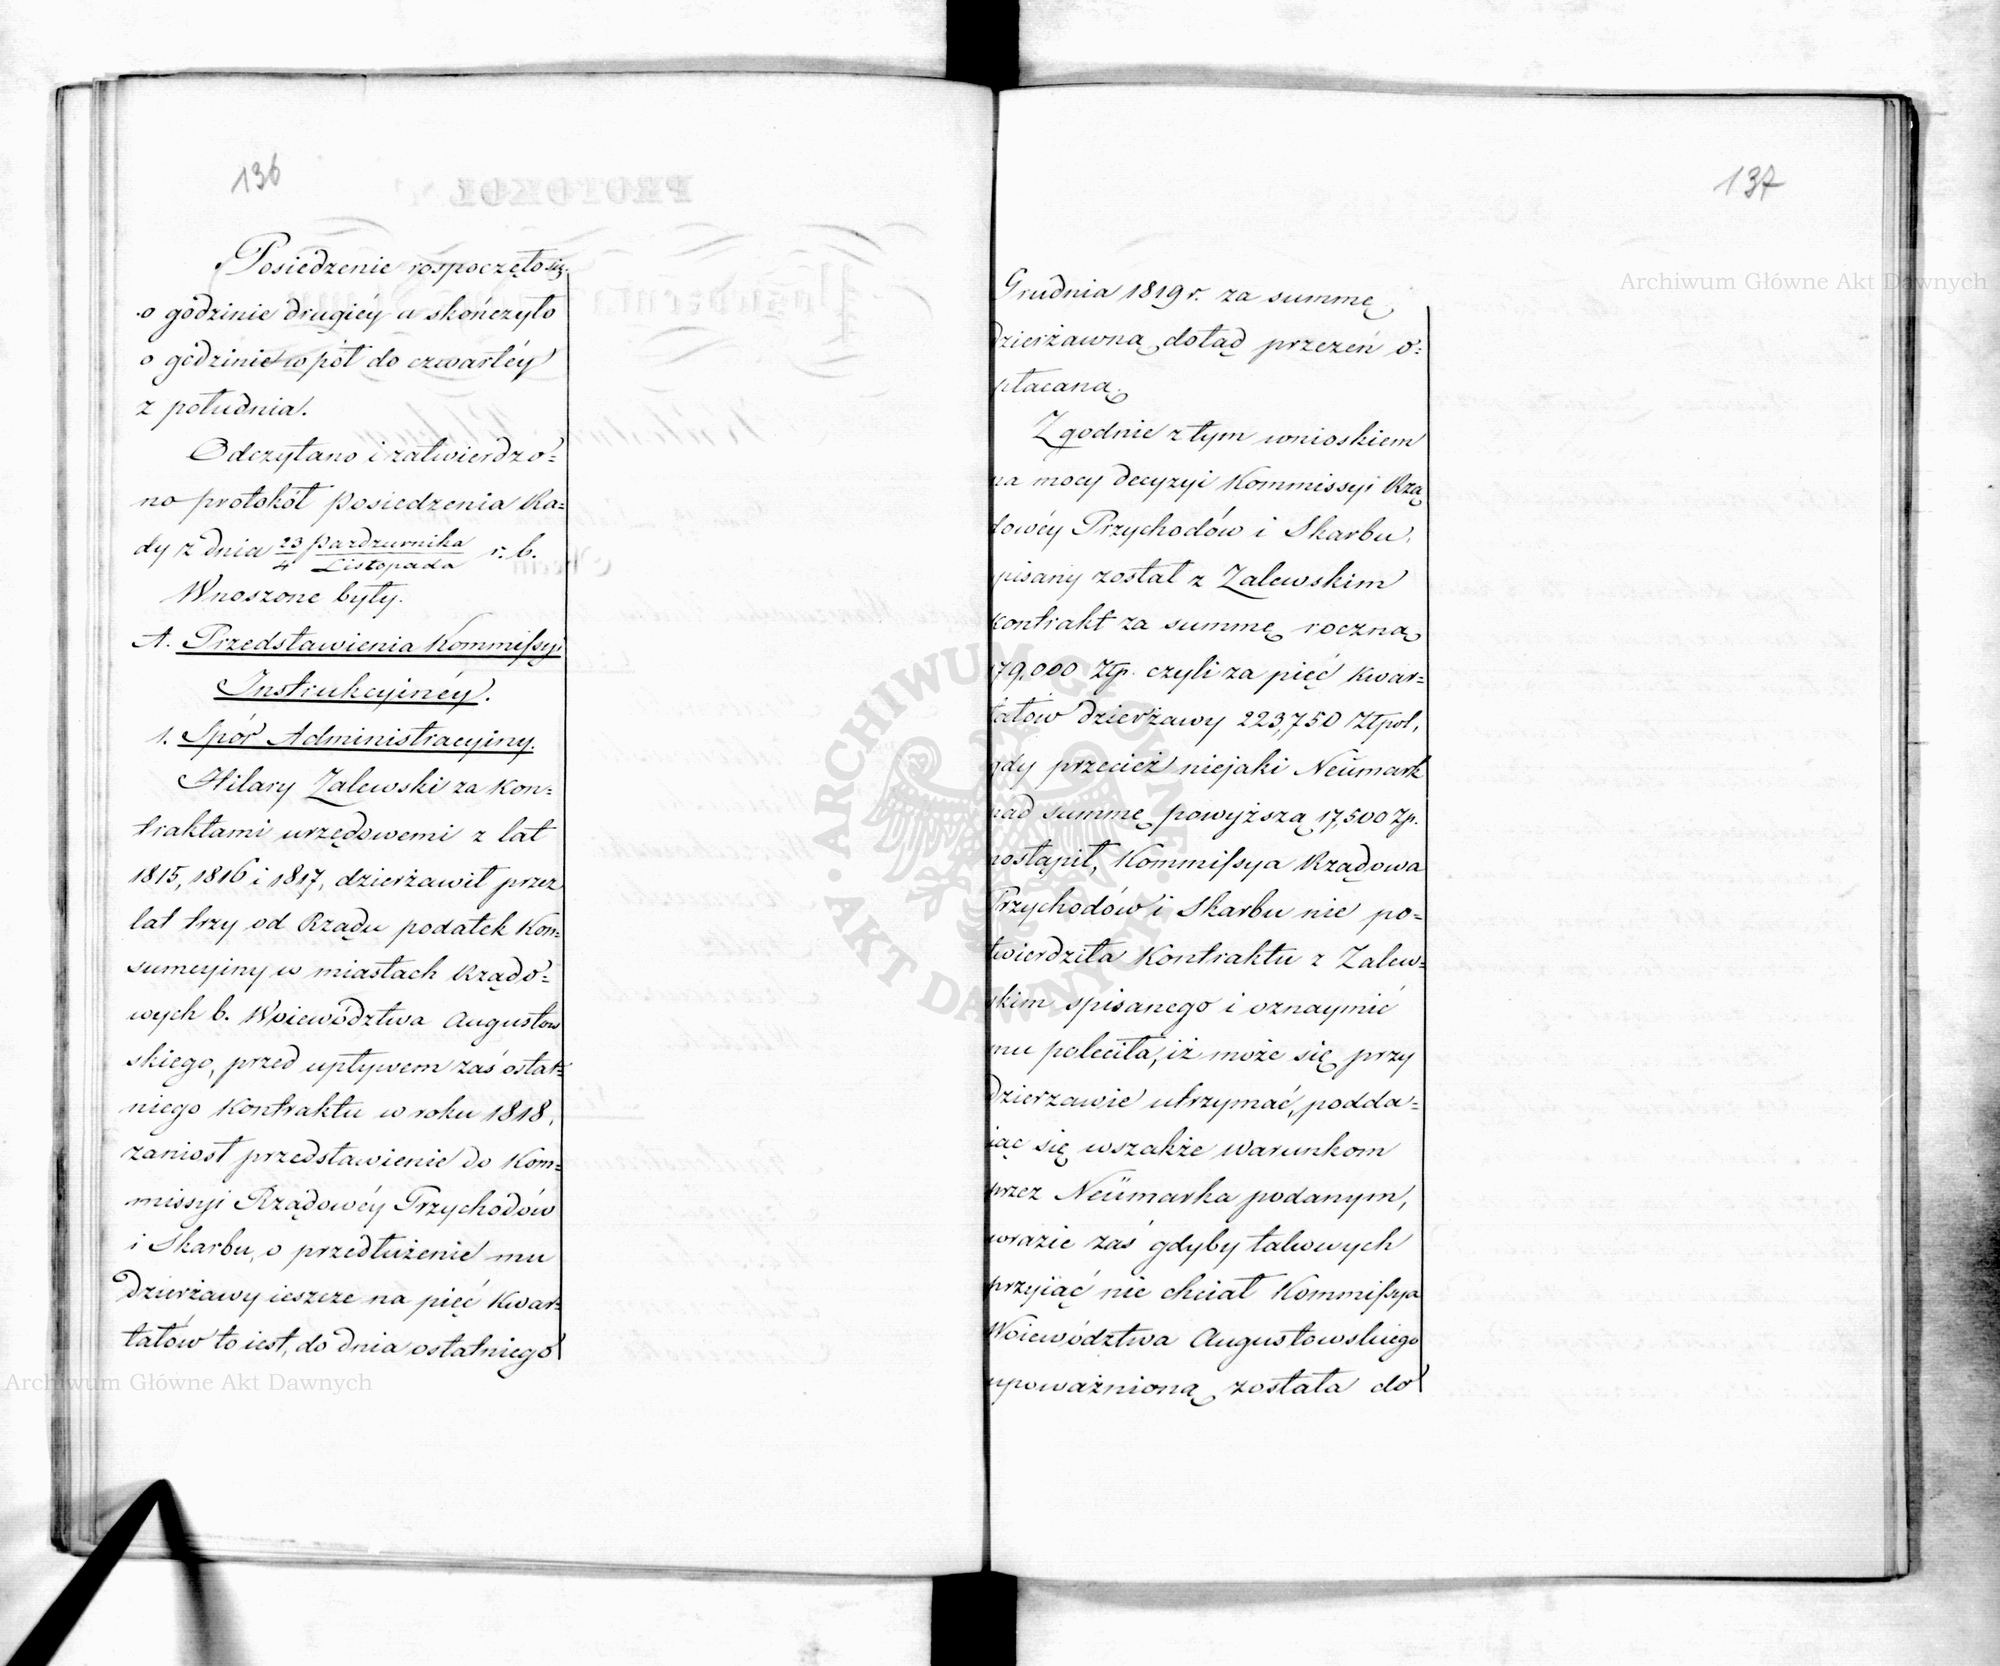 136
Posiedzenie rospoczęto się
o godzinie drugiéy a skończyło
o godzinie w pół do czwartéy
z południa.
Odczytano i zatwierdzo-
no protokół posiedzenia Ra-
dy z dnia 23 Pazdzurnika / 4 Listopada r. b.
Wnoszone były.
A. Przedstawienia Kommissyi
Instrukcyinéy.
1. Spór Administracyiny.
Hilary Zalewski za kon-
traktami urzędowemi z lat
1815, 1816 i 1817, dzierżawił przez
lat trzy od Rządu podatek kon-
sumcyiny w miastach Rządo-
wych b. Woiewództwa Augustow
skiego, przed upływem zaś ostat-
niego kontraktu w roku 1818,
zaniosł przedstawienie do Kom-
missyi Rządowéy Przychodów
i Skarbu, o przedłużenie mu
dzierżawy ieszcze na pięć kwar-
tałów to iest, do dnia ostatniego
137
Grudnia 1819 r. za summę
dzierżawną dotąd przezeń o-
płacaną.
Zgodnie z tym wnioskiem
na mocy decyzyi Kommissyi Rzą
dowéy Przychodów i Skarbu,
spisany został z Zalewskim
kontrakt za summę roczną
179,000 Złp. czyli za pięć kwar-
tałów dzierżawy 223,750 Złpol,
gdy przecież niejaki Neümark
nad summę powyższą 17,500 Zp.
postąpił, Kommissya Rządowa
Przychodów i Skarbu nie po-
twierdziła Kontraktu z Zalew-
skim spisanego i oznaymić
mu poleciła, iż może się przy
dzierzawie utrzymać, podda-
iąc się wszakże warunkom
przez Neümarka podanym,
wrazie zaś gdyby takowych
przyiąć nie chciał Kommissya
Woiewództwa Augustowskiego
upoważnioną została do
Archiwum Główne Akt Dawnych
Archiwum Główne Akt Dawnych
ARCHIWUM GŁÓWNE · AKT DAWNYCH ·